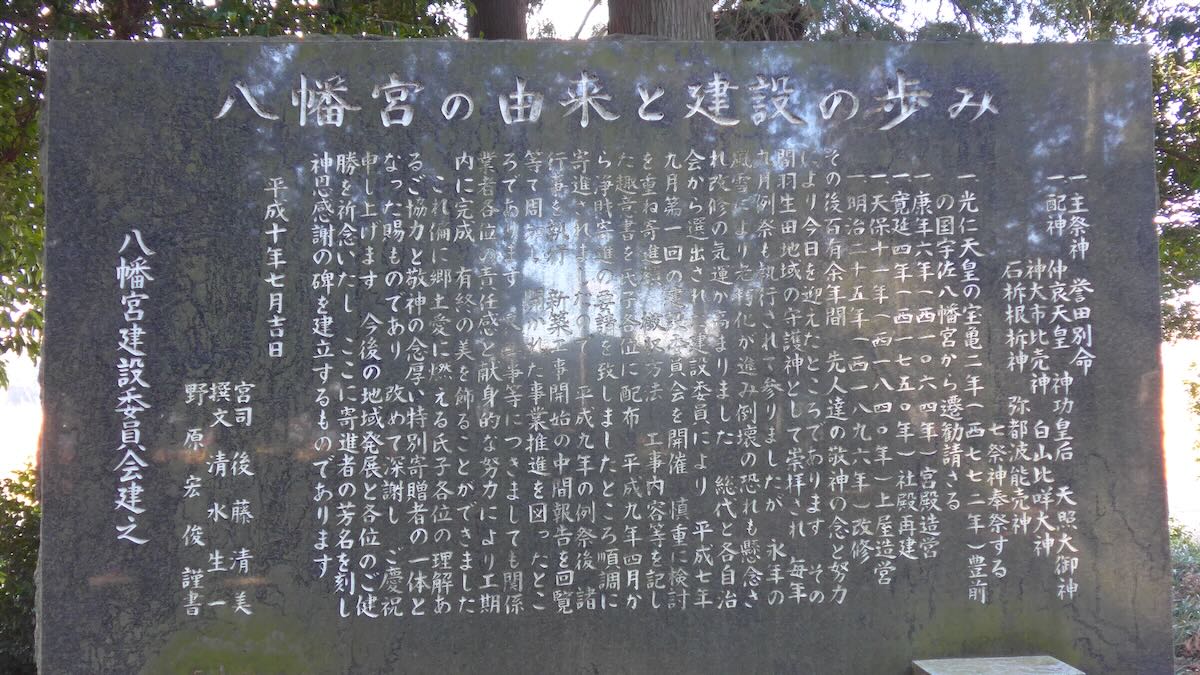 八幡宮の由来と建設の歩み
一 主祭神 誉田別命
一 配神 仲哀天皇 神功皇后 天照大御神
神大市比売神 白山比咩大神
石拆根拆神 弥都波能売神
七祭神奉祭する
一 光仁天皇の宝亀二年(西一七七二年)豊前
の国宇佐八幡宮から遷勧請さる
一 康平六年(西一〇六四年)宮殿造営
一 寛延四年(西一七五〇年)社殿再建
一 天保十一年(西一八四〇年)上屋造営
一 明治二十五年(西一八九六年)改修
その後百有余年間 先人達の敬神の念と努力
により今日を迎えたところであります その
間羽生田地域の守護神として崇拝され 毎年
九月例祭も執行されて参りましたが 永年の
風雪により老朽化が進み倒壊の恐れも懸念さ
れ改修の気運が高まりました 総代と各自治
会から選出された建設委員により 平成七年
九月第一回の建設委員会を開催 慎重に検討
を重ね寄進額 徴収方法 工事内容等を記し
た趣意書を氏子各位に配布 平成九年四月か
ら浄財寄進の要請を致しましたところ順調に
寄進されましたので 平成九年の例祭後 諸
行事を執行 新築工事開始の中間報告を回覧
等で周知 開かれた事業推進を図ったとこ
ろであります 工事等につきましても関係
業者各位の責任感と献身的な努力により工期
内に完成 有終の美を飾ることができました
これ偏に郷土愛に燃える氏子各位の理解あ
るご協力と敬神の念厚い特別寄贈者の一体と
なった賜ものであり 改めて深謝し ご慶祝
申し上げます 今後の地域発展と各位のご健
勝を祈念いたし ここに寄進者の芳名を刻し
神恩感謝の碑を建立するものであります
平成十年七月吉日
宮司 後藤清美
撰文 清水生一
野原宏俊 謹書
八幡宮建設委員会建之